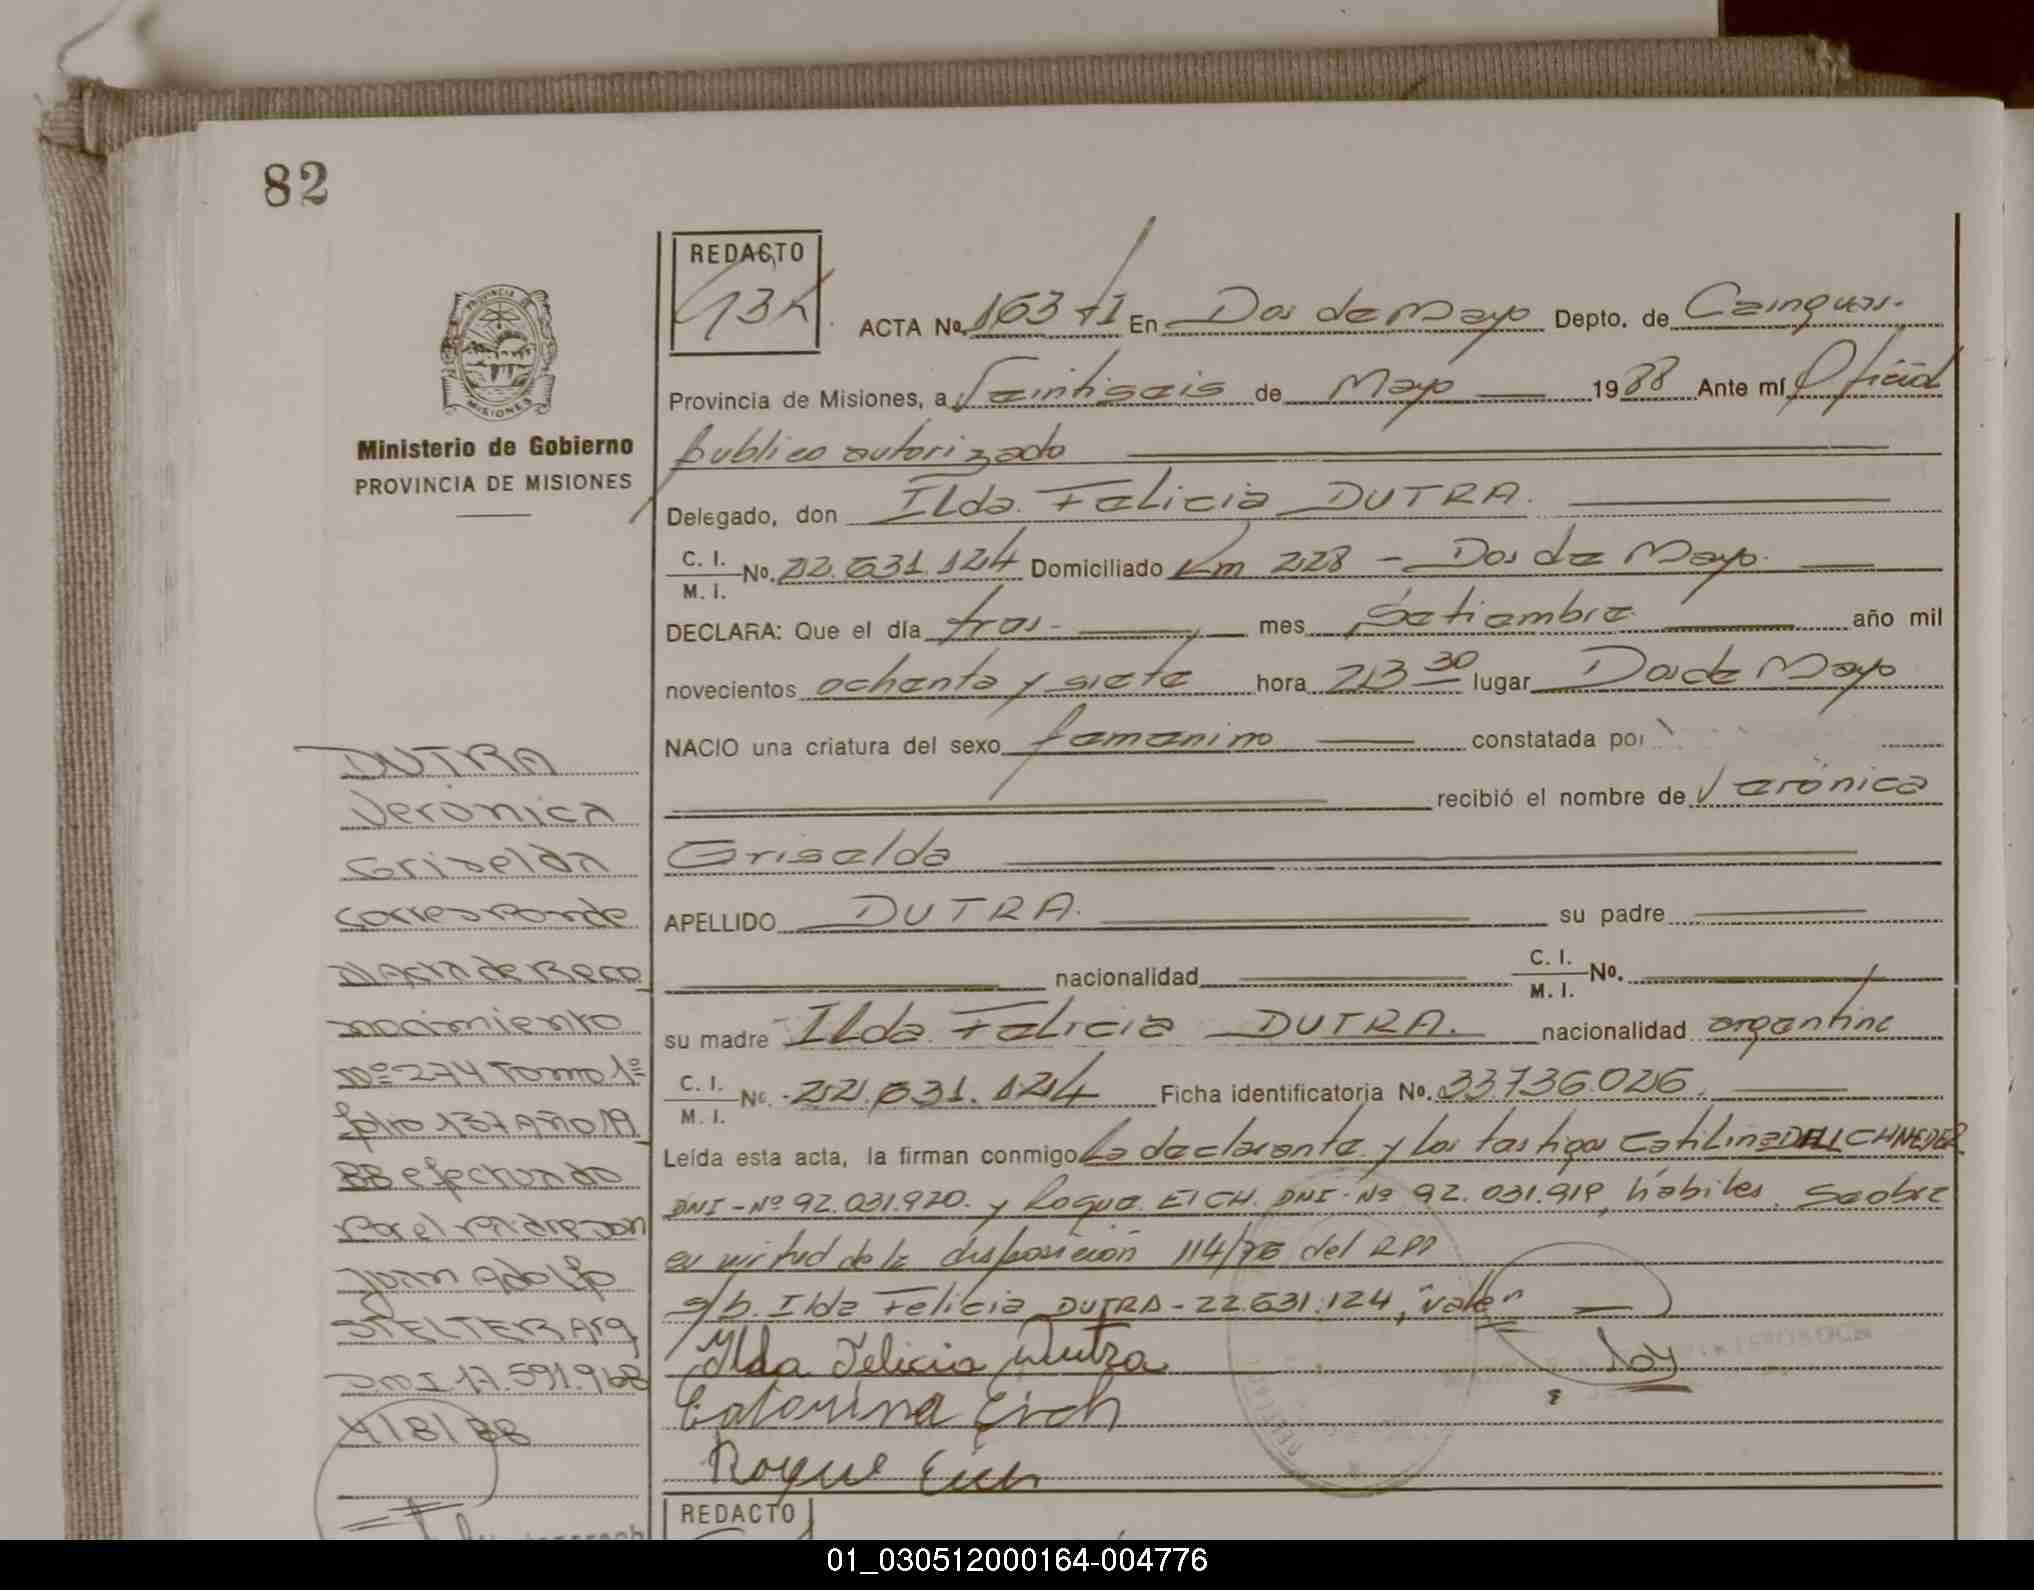 82
REDACTO
ACTA No. 163 TI En Dos de Mayo Depto. de Cainguas.
Provincia de Misiones, a Veintiseis de Mayo 1988 Ante mí Oficial
publico autorizado
Delegado, don Ilda Felicia DUTRA.
C. I.
M. I.
No. 22.631.124 Domiciliado Km 228 - Dos de Mayo.
DECLARA: Que el día tres- mes Setiembre año mil
novecientos ochenta y siete hora 23 30 lugar Dos de Mayo
NACIO una criatura del sexo femenino constatada por
recibió el nombre de Verónica
Griselda
APELLIDO DUTRA. su padre
nacionalidad C. I. M. I. No.
su madre Ilda Felicia DUTRA. nacionalidad argentina
C. I.
M. I.
No. 22.631.124 Ficha identificatoria No. 33736026
Leída esta acta, la firman conmigo La declarante y los testigos
DNI-Nº 92.031.920. y Roque EICH. DNI-Nº 92.031.919, hábiles. Seobre
en virtud de la disposición del
s/b. Ilda Felicia DUTRA - 22.631.124, "vale"
Ilda Felicia Dutra
Catarina Eich
Roque Eich
REDACTO
PROVINCIA DE
MISIONES
Ministerio de Gobierno
PROVINCIA DE MISIONES
DUTRA
Verónica
Griselda
corresponde
Acta de Reco
nocimiento
Nº 274 Tomo 1º
folio 137 Año 19
88 efectuado
por el padre Don
Juan Adolfo
STELTER Arg
DNI 17.591.968
4/8/88
01_030512000164-004776